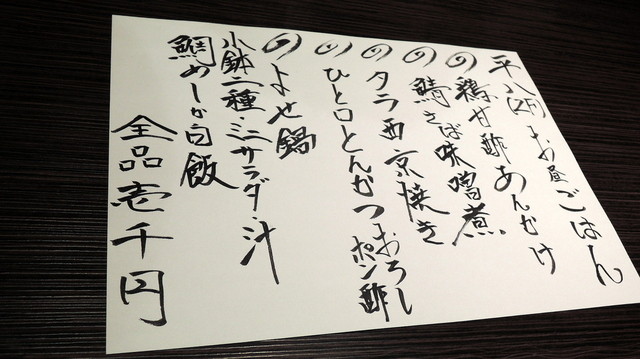 平八(2F)お昼ごはん
の 鶏甘酢あんかけ
の 鯖さば味噌煮
の タラ西京焼き
の ひと口とんかつおろしポン酢
の よせ鍋
小鉢二種・ミニサラダ・汁
鯛めしか白飯
全品壱千円